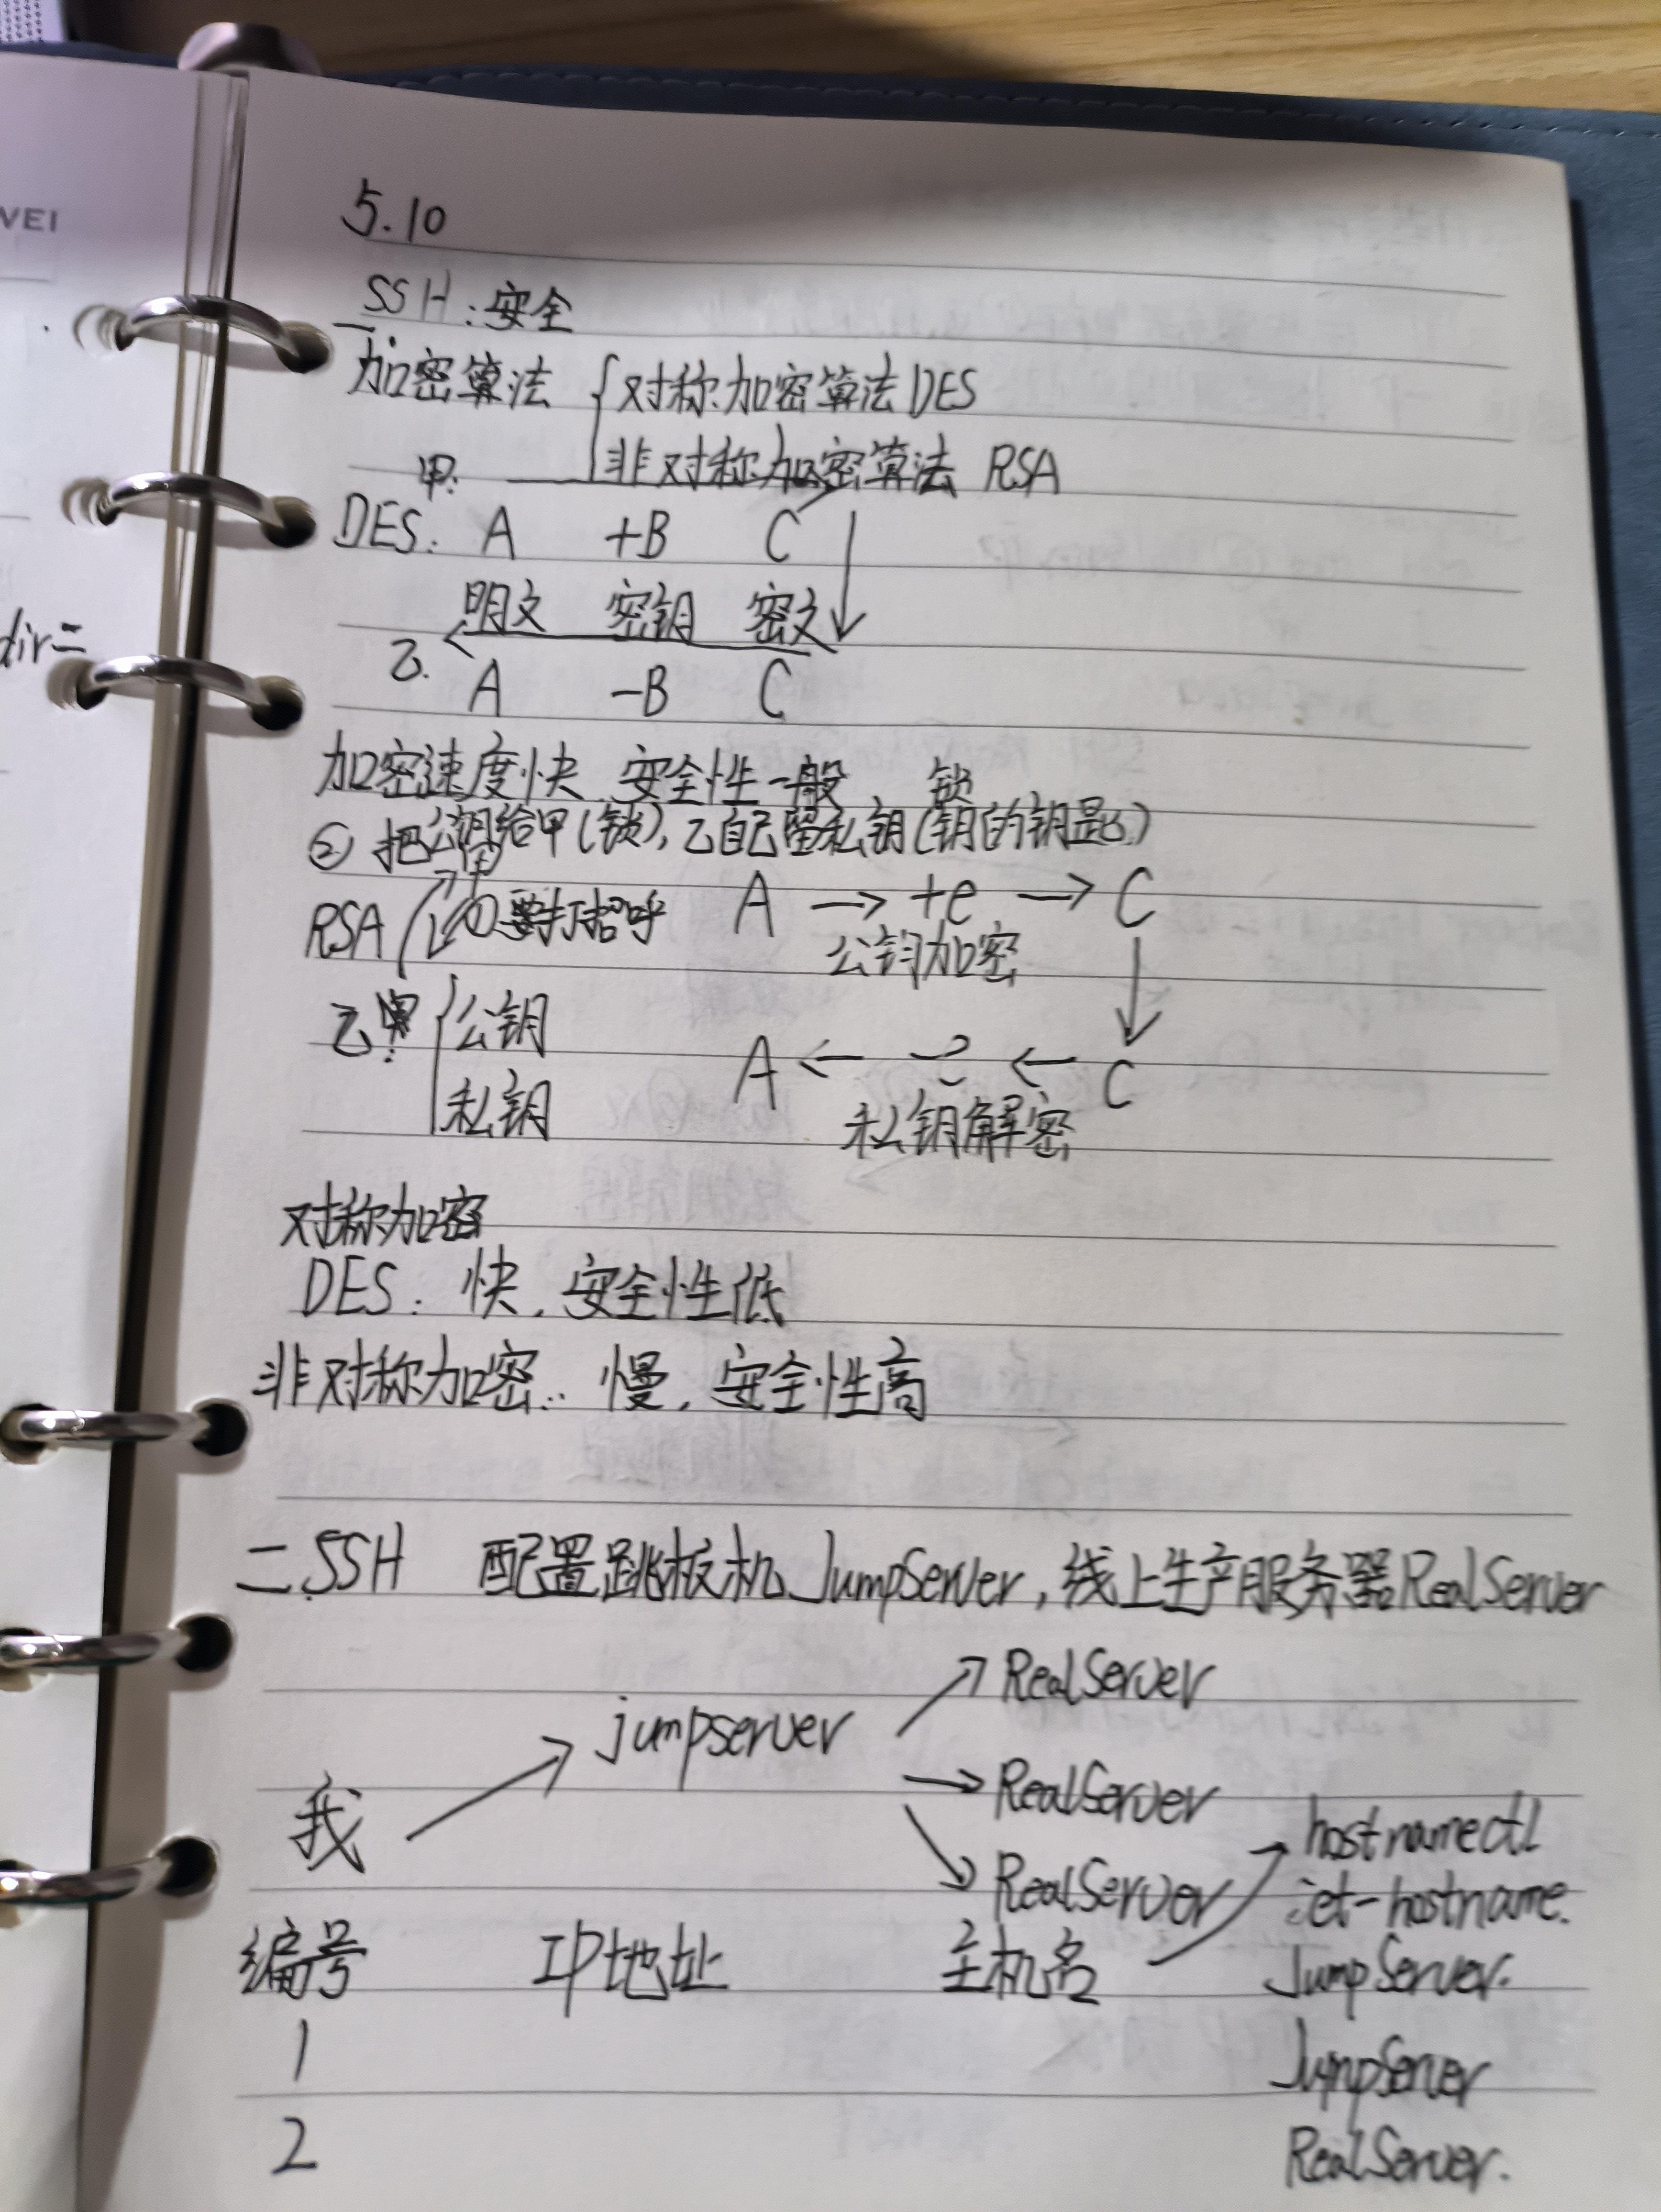 VEI
dir=
5.10
一 SSH:安全
加密算法 { 对称加密算法 DES
非对称加密算法 RSA
甲:
DES: A +B C
明文 密钥 密文
乙.
A -B C
加密速度快.安全性一般 锁
② 把公钥给甲(锁),乙自己留私钥(钥的钥匙)
甲
RSA ①要打招呼 A → +e → C
公钥加密
乙 : { 公钥
私钥
A ← ← C
私钥解密
对称加密
DES: 快.安全性低
非对称加密.. 慢.安全性高
二.SSH 配置跳板机JumpServer,线上生产服务器RealServer
RealServer
jumpserver
我 RealServer
RealServer
hostnamectl
set-hostname.
JumpServer.
编号 IP地址 主机名
1 JumpServer
2 RealServer.